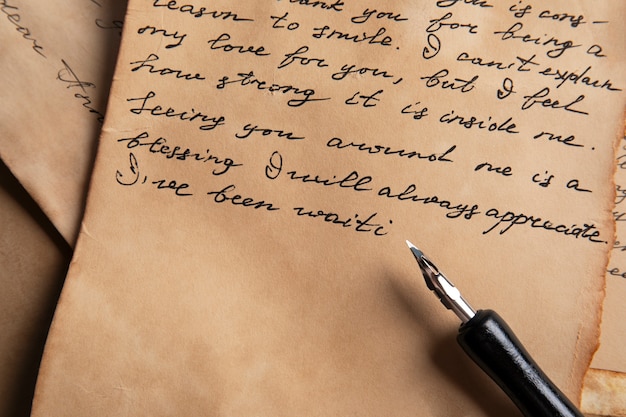 you is cons-
reason to smile. Thank you for being a
my love for you, but I can't explain
how strong it is inside me. I feel
Seeing you around me is a
blessing I will always appreciate.
I've been waiti
dear Ann